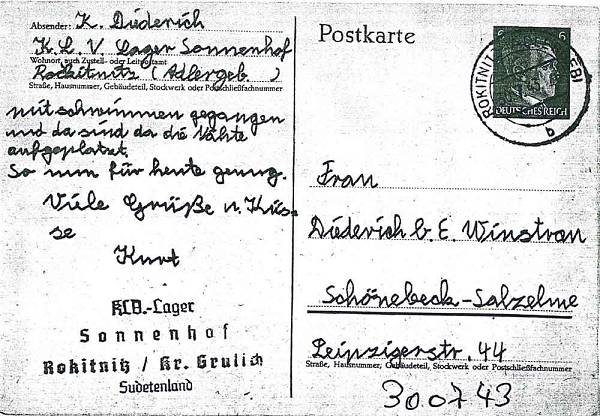 Absender: K. Diederich
K. L. V. Lager Sonnenhof
Wohnort, auch Zustell- oder Leitpostamt
Rockitnitz (Adlergeb.)
Straße, Hausnummer, Gebäudeteil, Stockwerk oder Postschließfachnummer
mit schwimmen gegangen
und da sind da die Nähte
aufgeplatzt.
So nun für heute genug.
Viele Grüße u. Küs-
se
Kurt
KLV.-Lager
Sonnenhof
Rokitnitz / Kr. Grulich
Sudetenland
Postkarte
6 6
DEUTSCHES REICH
ROKITNITZ
b
Frau
Diederich b. E. Winstran
Schönebeck-Salzelme
Leipzigerstr. 44
Straße, Hausnummer, Gebäudeteil, Stockwerk oder Postschließfachnummer
300743